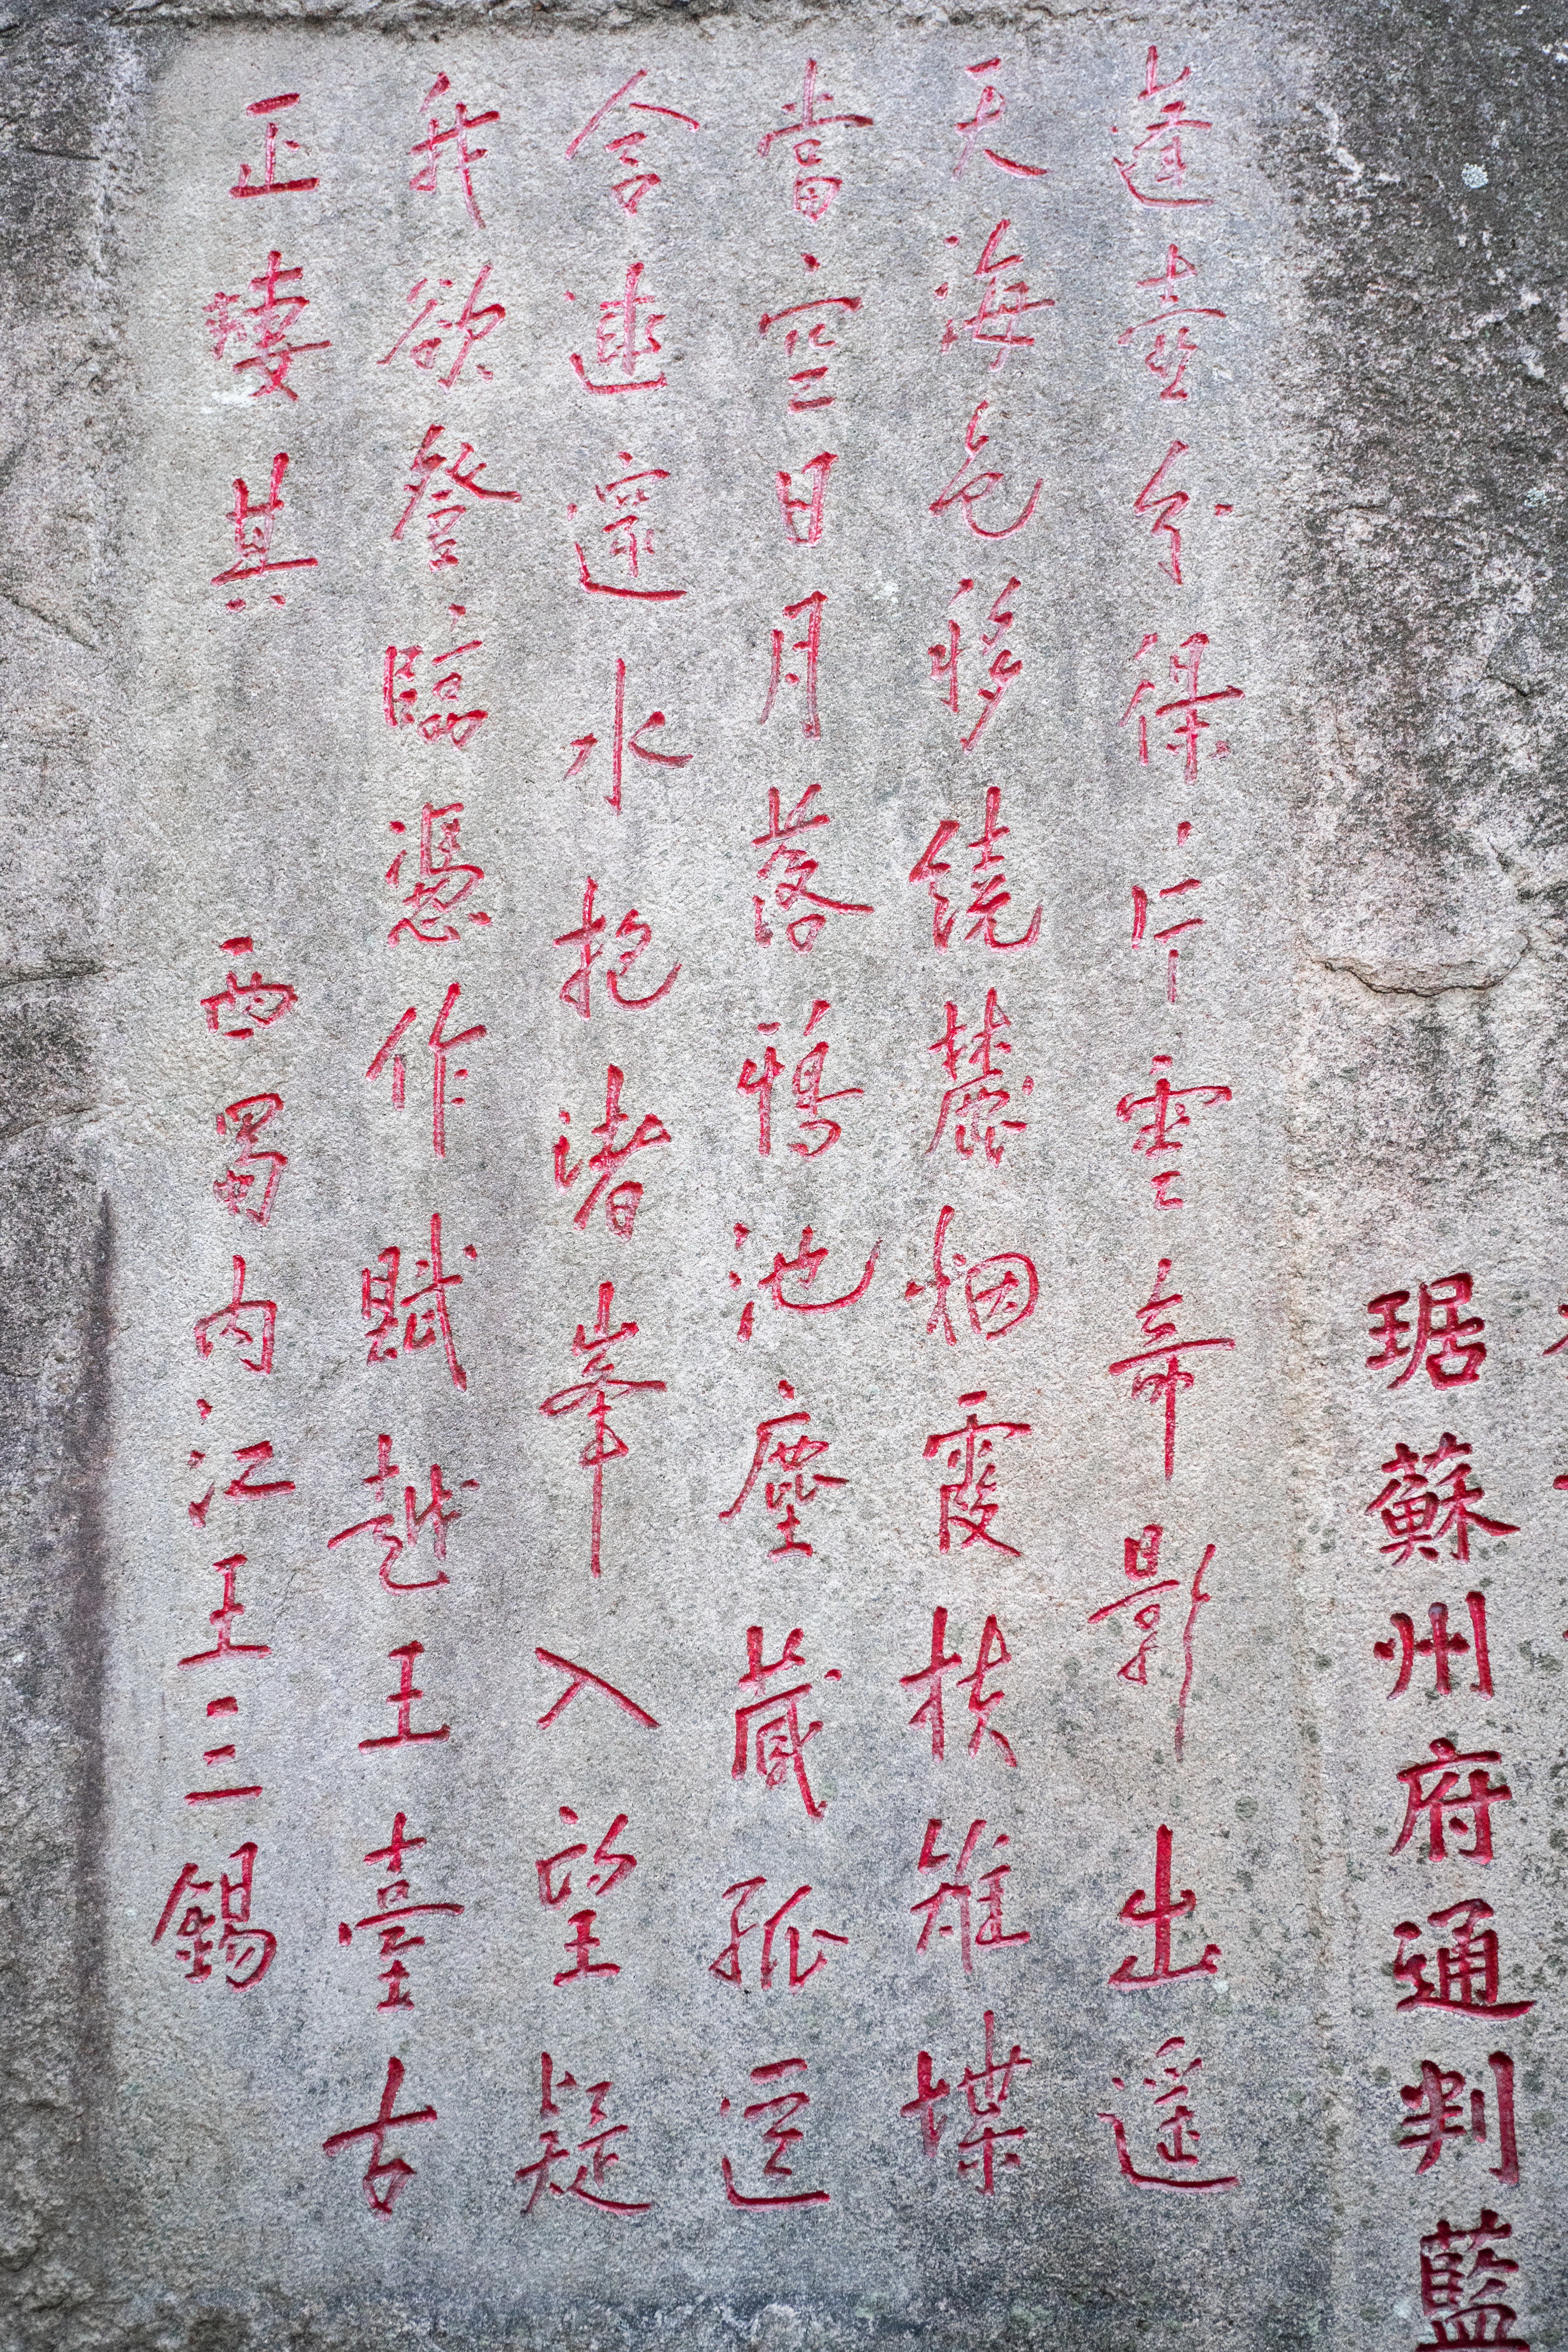 琚蘇州府通判藍
蓬壺分片雲奇影出遥
天海色移繞麓烟霞扶雉堞
當空日月落池塵藏孤
含水抱渚峯入望疑
我欲登臨憑作賦越王臺古
正其 西蜀内江王三錫